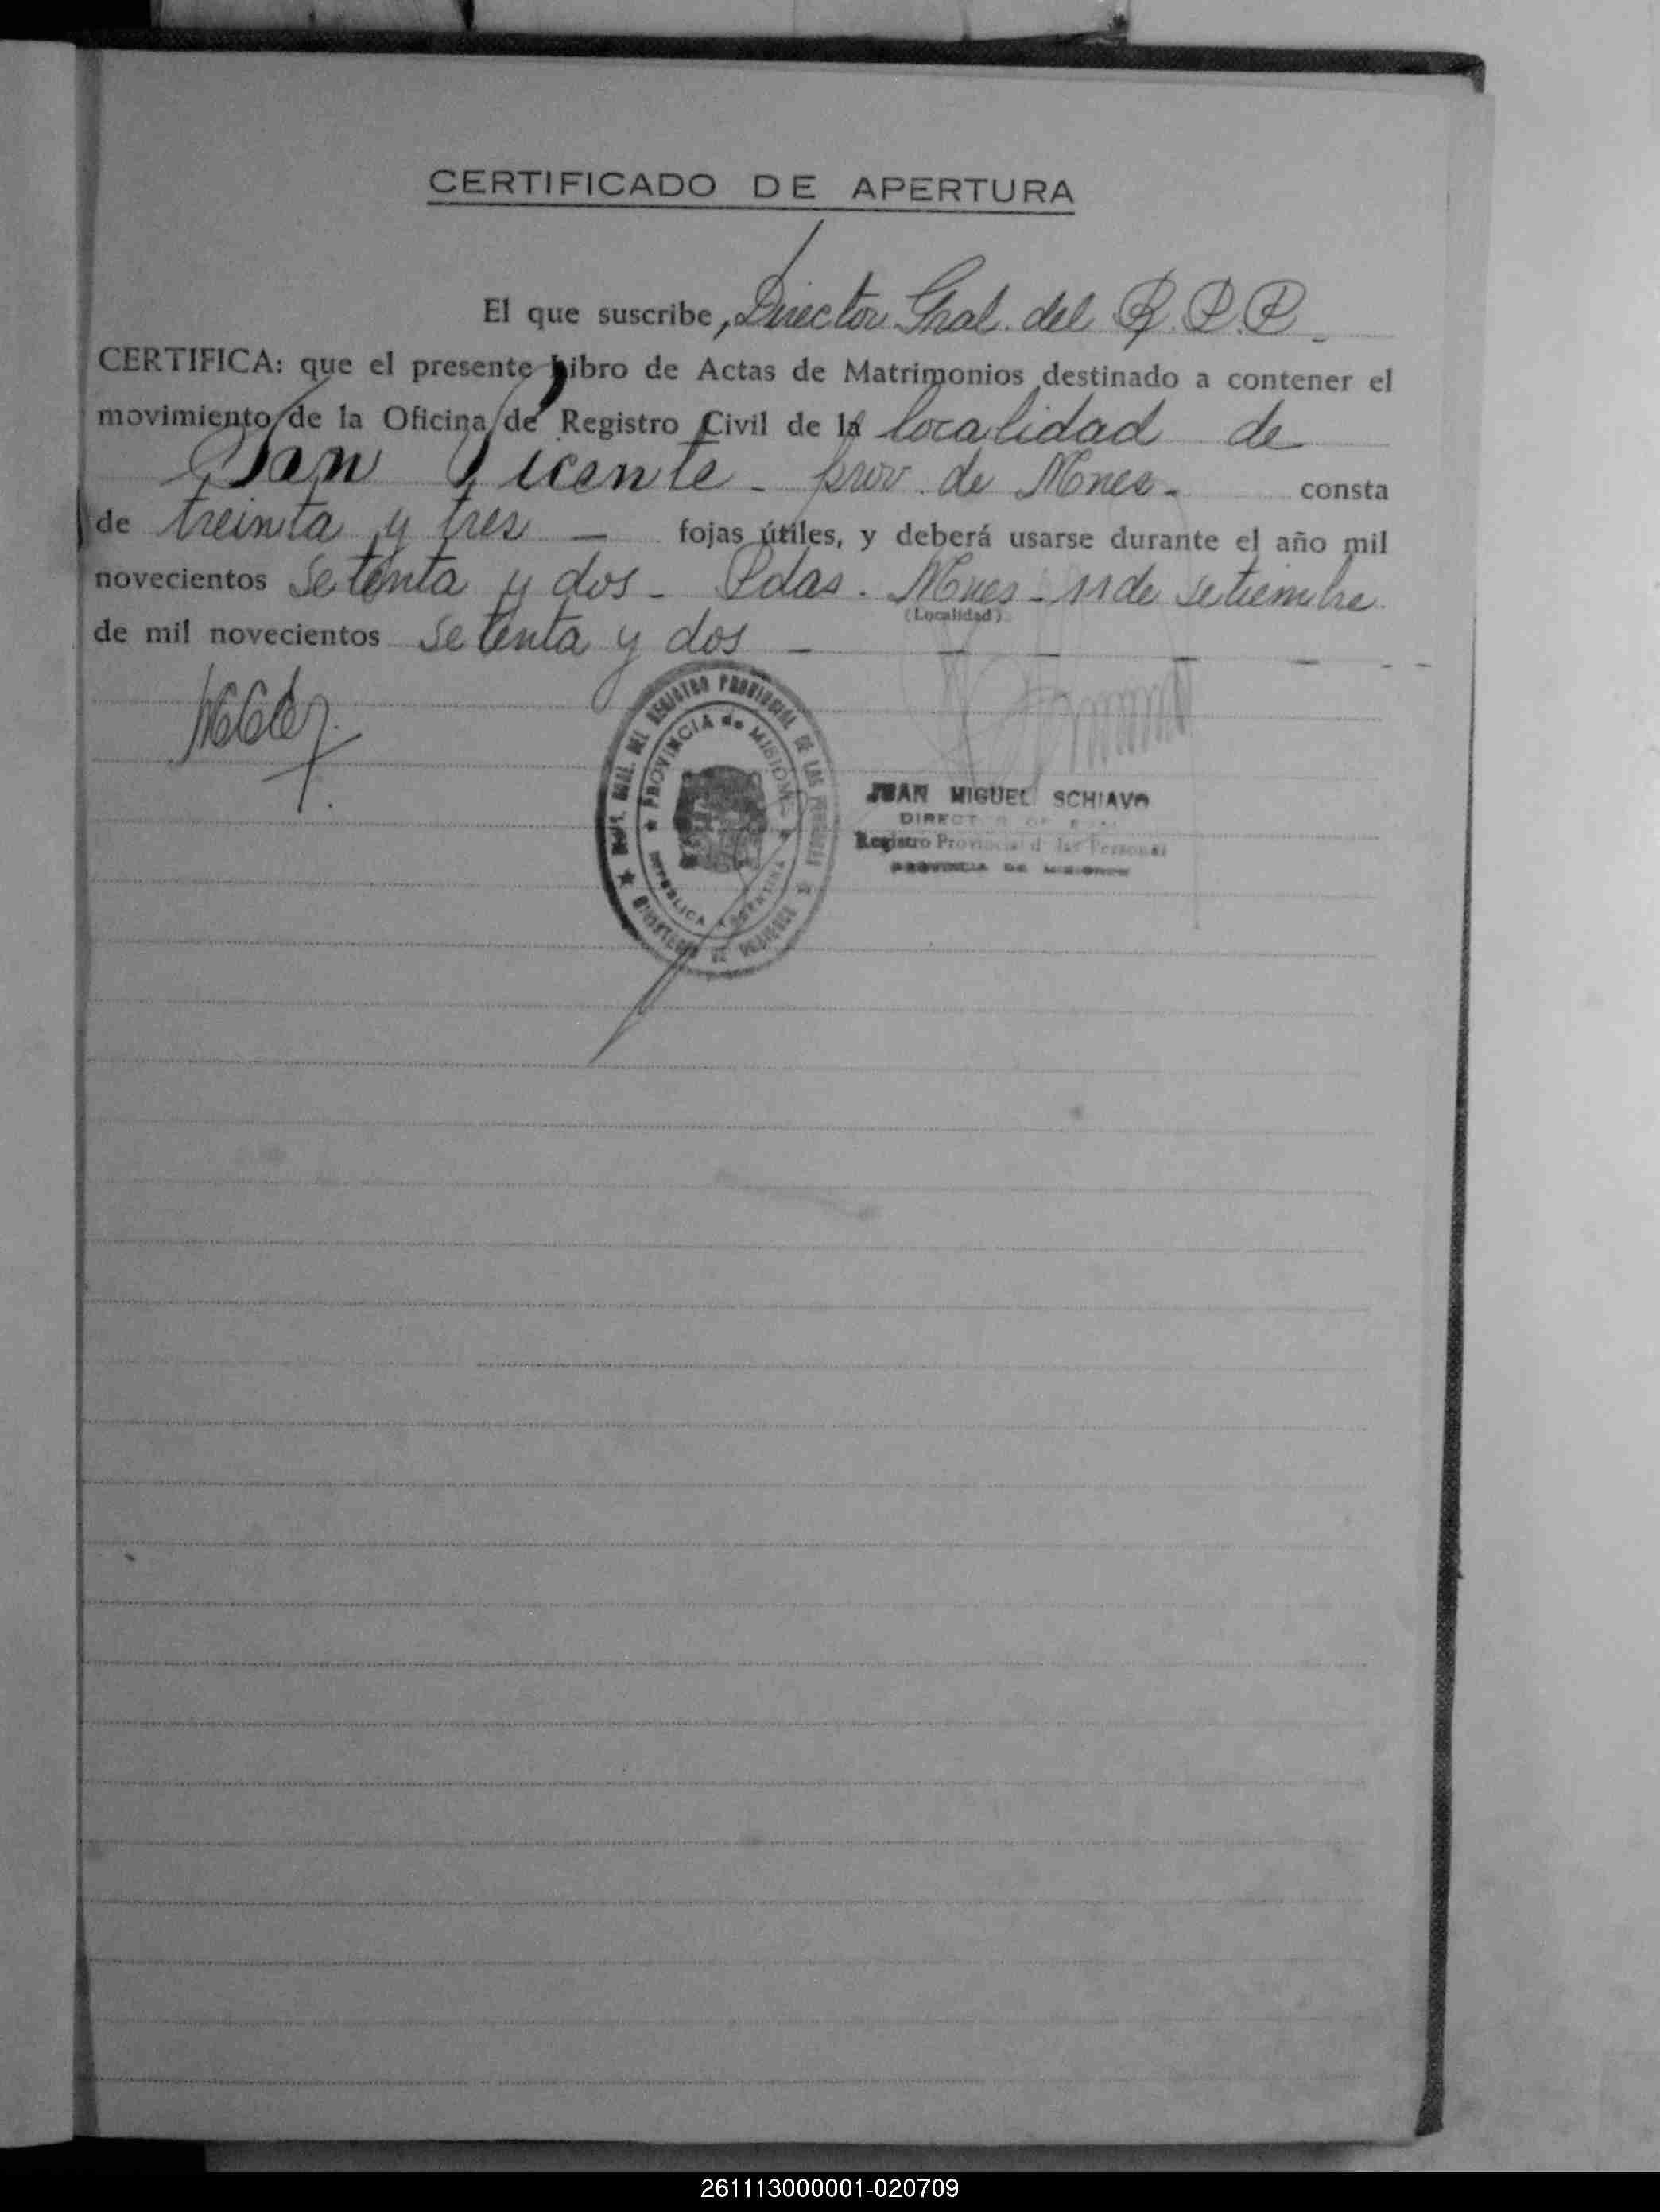 CERTIFICADO DE APERTURA
El que suscribe, Director Gral. del R. P. P.
CERTIFICA: que el presente Libro de Actas de Matrimonios destinado a contener el
movimiento de la Oficina de Registro Civil de la localidad de
San Vicente - prov. de Mnes - consta
de treinta y tres — fojas útiles, y deberá usarse durante el año mil
novecientos Setenta y dos - Pdas. Mnes - 11 de setiembre
(Localidad)
de mil novecientos Setenta y dos —
DEL REGISTRO PROVINCIAL DE LAS PERSONAS
PROVINCIA de MISIONES
REPUBLICA ARGENTINA
MINISTERIO DE GOBIERNO
JUAN MIGUEL SCHIAVO
DIRECTOR
Registro Provincial de las Personas
PROVINCIA DE MISIONES
261113000001-020709